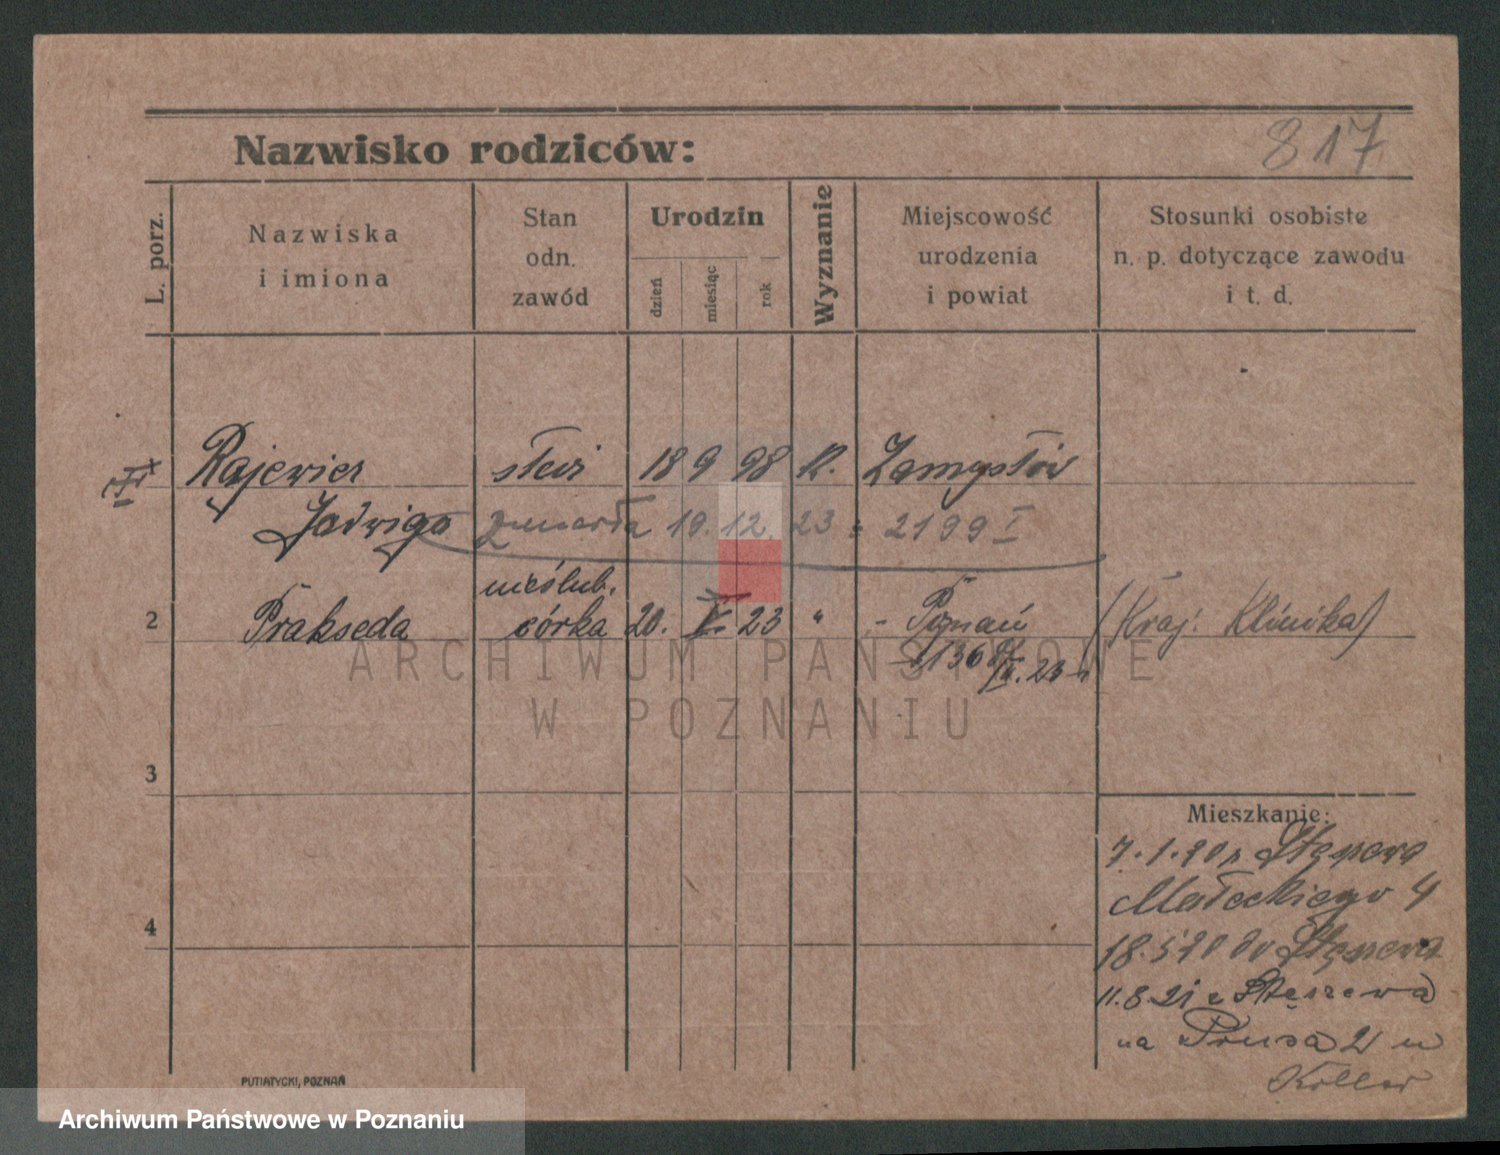 Nazwisko rodziców:
817
L. porz.
Nazwiska
i imiona
Stan
odn.
zawód
Urodzin
dzień
miesiąc
rok
Wyznanie
Miejscowość
urodzenia
i powiat
Stosunki osobiste
n. p. dotyczące zawodu
i t. d.
Rajewicz 18 9 98 Zamysłów
Jadwiga zmarła 19.12.23 2199 I
nieślub.
2 Prakseda córka 20. V. 23 " - Poznań (Kraj. Klinika)
ARCHIWUM PAŃSTWOWE
W POZNANIU
3
Mieszkanie:
7.1.20 z Stęszewa
Małeckiego 4
4
18.5 20 do Stęszewa
11.8.21 z Stęszewa
na Prusa 21 u
Koller
PUTIATYCKI, POZNAŃ
Archiwum Państwowe w Poznaniu